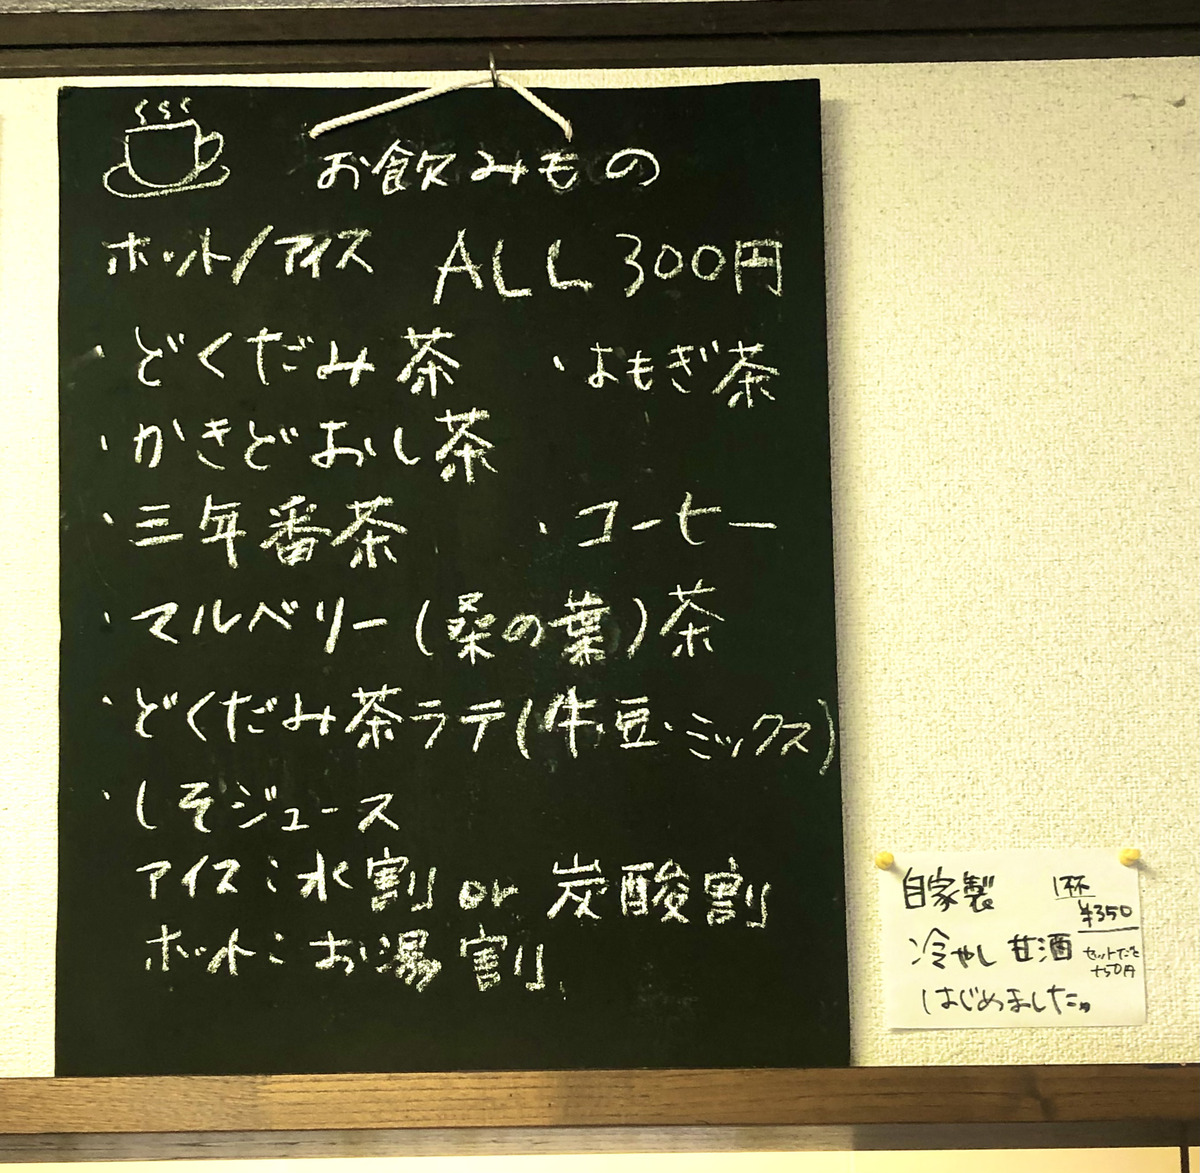 お飲みもの
ホット/アイス ALL 300円
・どくだみ茶 ・よもぎ茶
・かきどおし茶
・三年番茶 ・コーヒー
・マルベリー(桑の葉)茶
・どくだみ茶ラテ(牛・豆・ミックス)
・しそジュース
アイス:水割 or 炭酸割
ホット:お湯割
自家製 1杯 ¥350
冷やし甘酒 セットだと+50円
はじめました。